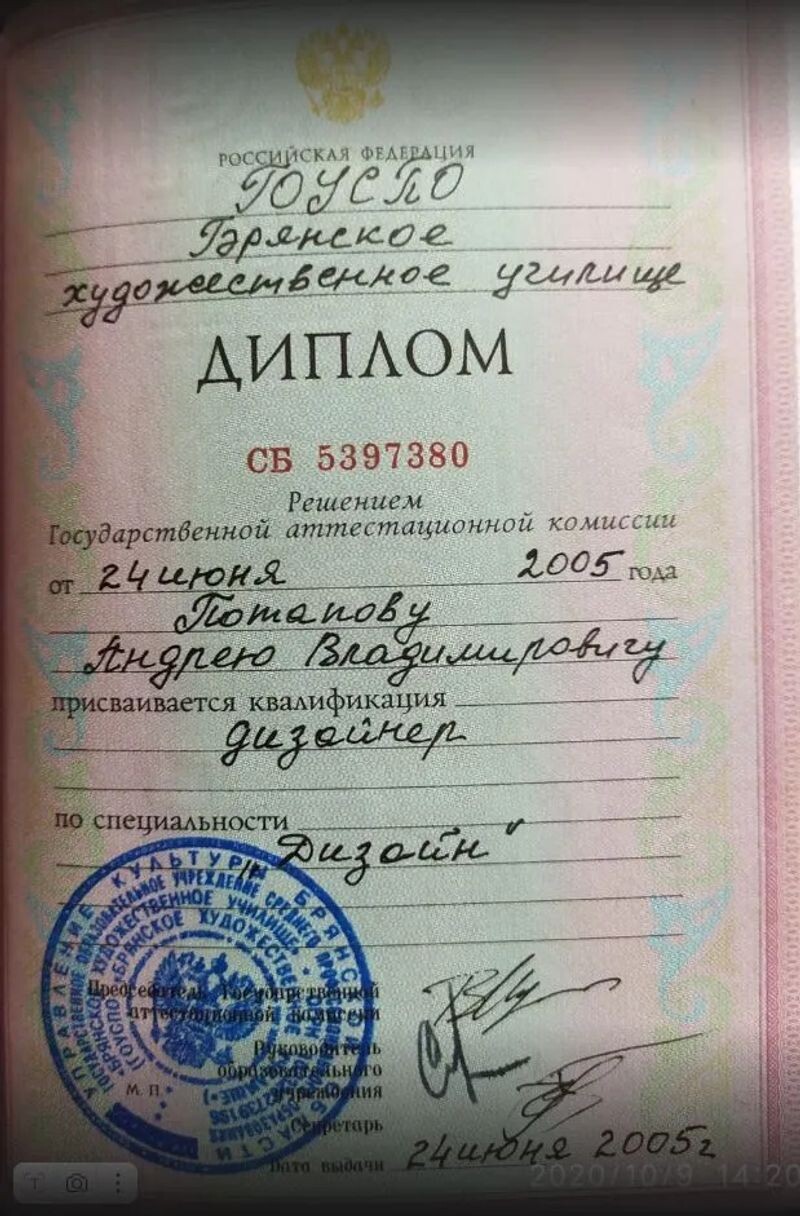 РОССИЙСКАЯ ФЕДЕРАЦИЯ
ГОУСПО
Брянское
художественное училище
ДИПЛОМ
СБ 5397380
Решением
Государственной аттестационной комиссии
от 24 июня 2005 года
Потапову
Андрею Владимировичу
присваивается квалификация
дизайнер
по специальности
„Дизайн"
УПРАВЛЕНИЕ КУЛЬТУРЫ БРЯНСКОЙ ОБЛАСТИ
ГОСУДАРСТВЕННОЕ ОБРАЗОВАТЕЛЬНОЕ УЧРЕЖДЕНИЕ СРЕДНЕГО
БРЯНСКОЕ ХУДОЖЕСТВЕННОЕ УЧИЛИЩЕ
(ГОУСПО «БРЯНСКОЕ ХУДОЖЕСТВЕННОЕ
Председатель Государственной
аттестационной комиссии
Руководитель
образовательного
учреждения
М. П.
Секретарь
Дата выдачи 24 июня 2005 г
2020/10/9 14:20